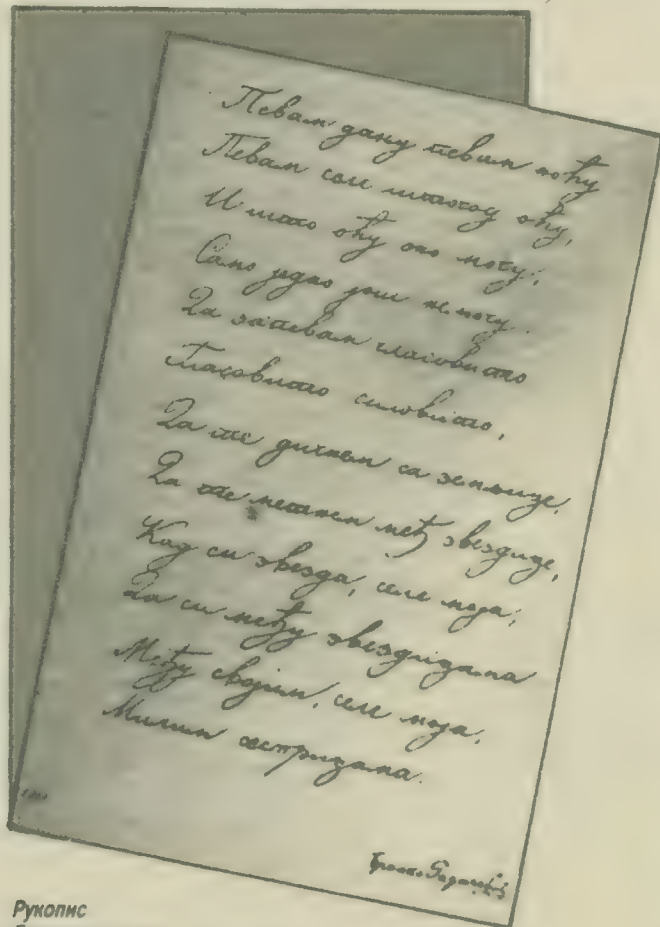 Певам дању певам ноћу
Певам селе штагод оћу,
И што оћу оно могу;
Само једно још не могу.
Да запевам гласовито
Гласовито силовито,
Да те дигнем са земљице,
Да те метнем међ звездице,
Кад си звезда, селе моја;
Да си међу звездицама
Међу својим, селе моја,
Милим сестрицама.
Бранко Радичевић
Рукопис